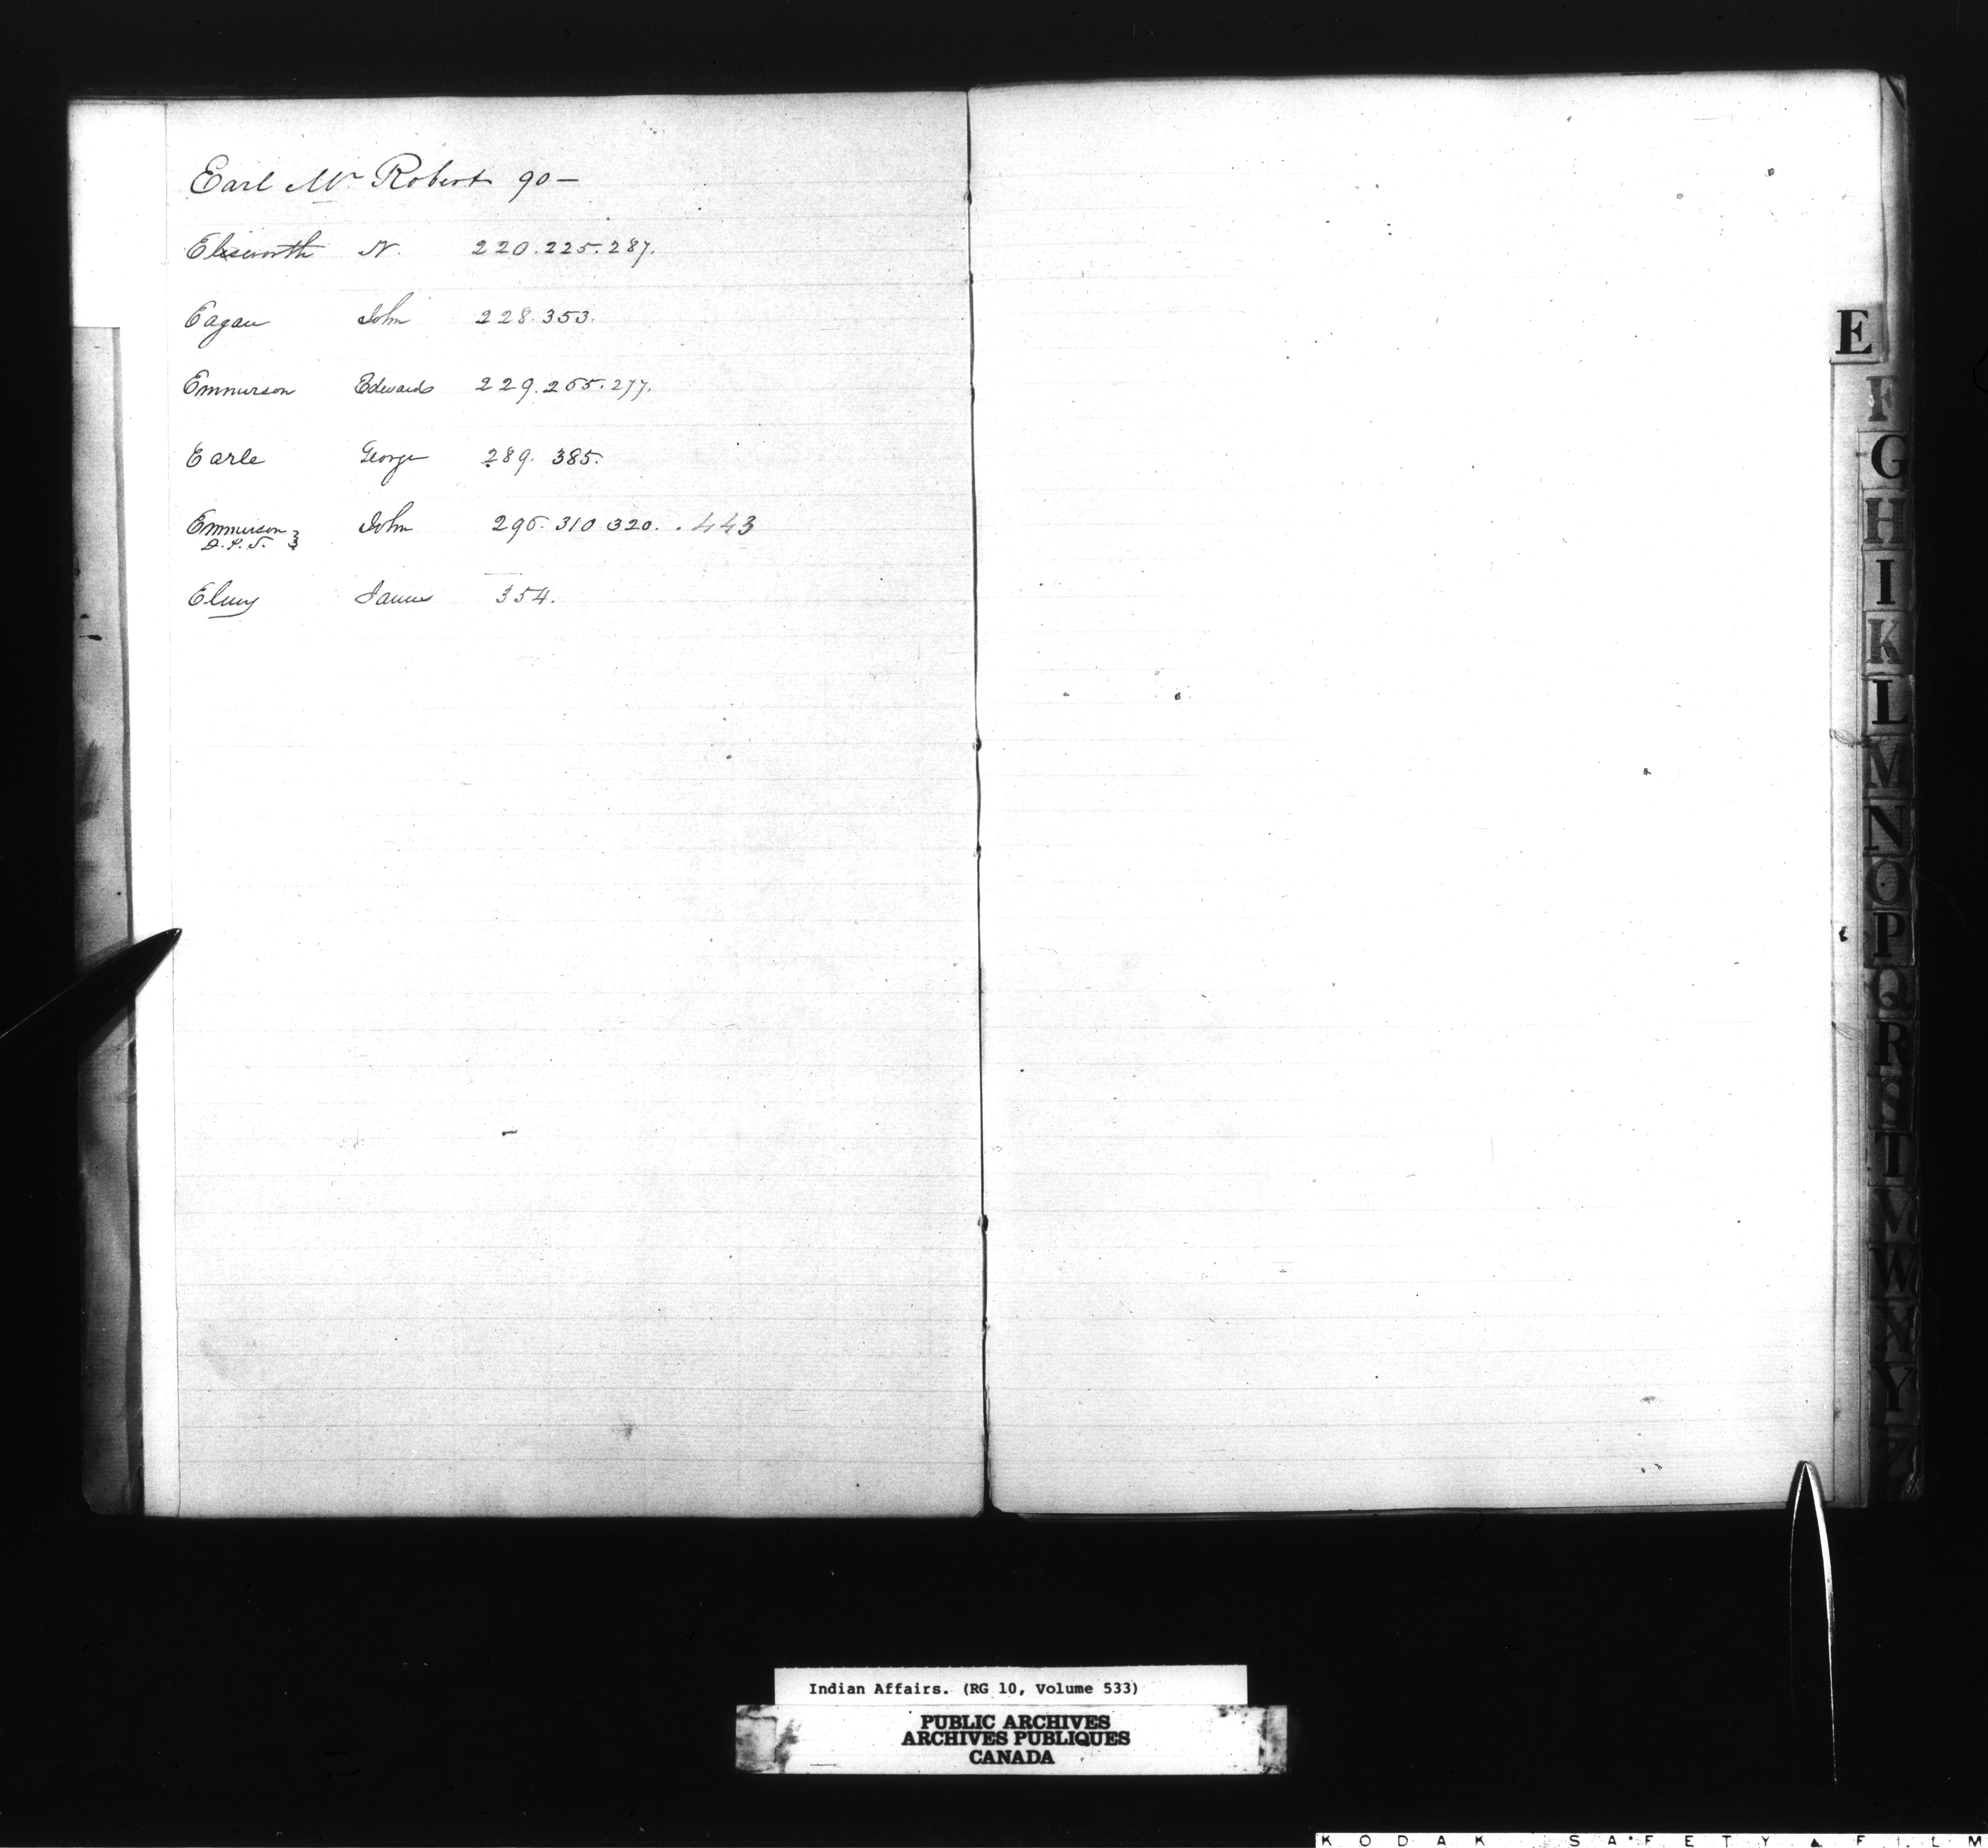 Earl Mr Robert 90 —
Elsworth N. 220. 225. 287.
Eagan John 228. 353.
Emmerson Edward 229. 265. 277.
Earle George 289. 385.
Emmerson John 296. 310 320. . 443
D.P.S.
Elmy James 354.
E
F
G
H
I
K
L
M
N
O
P
Q
R
S
T
V
W
X
Y
Z
Indian Affairs. (RG 10, Volume 533)
PUBLIC ARCHIVES
ARCHIVES PUBLIQUES
CANADA
KODAK SAFETY FILM